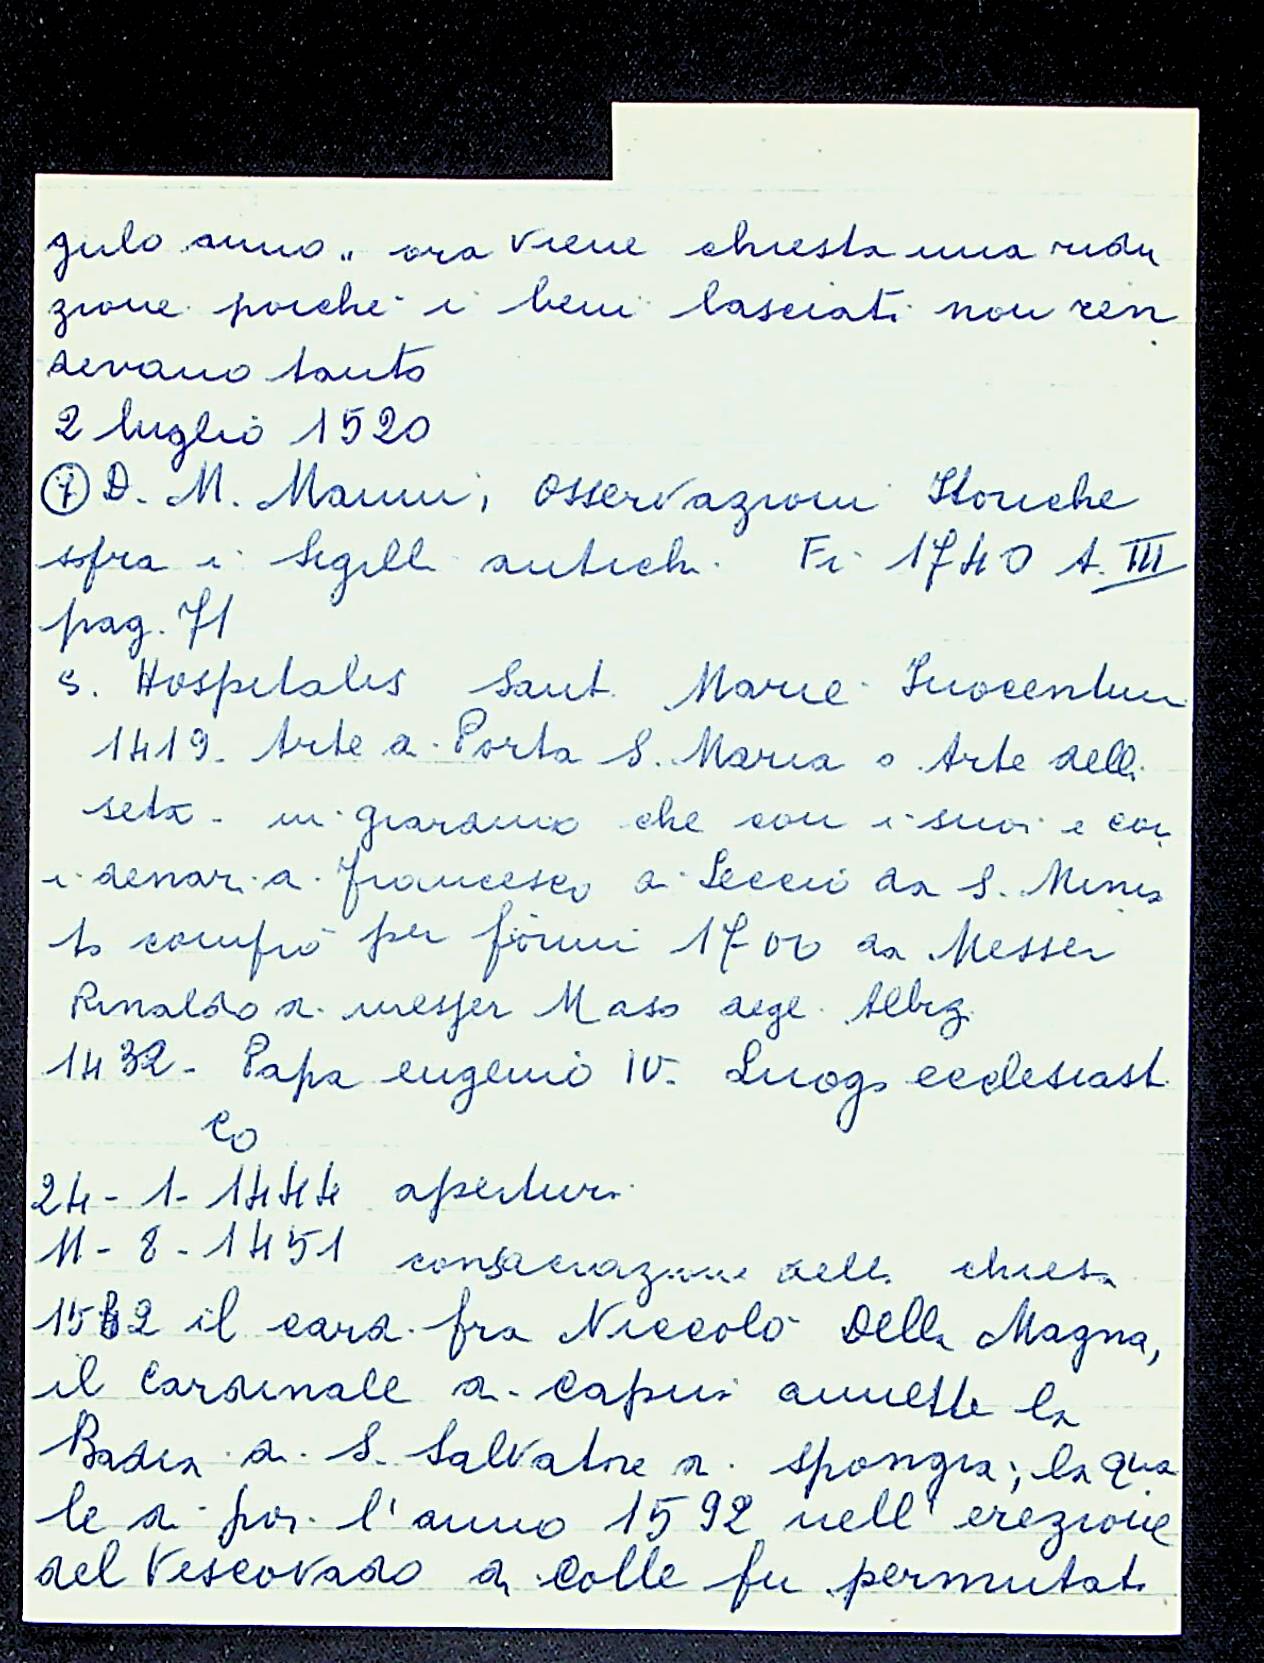 gulo anno„ ora viene chiesta una ridu
zione poiché i beni lasciati non ren
devano tanto
2 luglio 1520
7 D. M. Manni, Osservazioni Storiche
sopra i Sigilli antichi. Fi 1740 t. III
pag. 71
S. Hospitalis Sant. Marie Inocentum
1419. Arte di Porta S. Maria o Arte della
seta - un giardino che con i suoi e con
i denari di Francesco di Leccio da S. Minia
to comprò per fiorini 1700 da Messer
Rinaldo di messer Maso degli Albizi
1432 - Papa eugenio IV. Luogo ecclesiasti
co
24 - 1 - 1444 apertura
11 - 8 - 1451 consacrazione della chiesa
il card. fra Niccolò Della Magna,
il Cardinale di Capua annette la
Badia di S. Salvatore a Spongia; la qua
le di poi l'anno 1592 nell'erezione
del Vescovado di Colle fu permutata